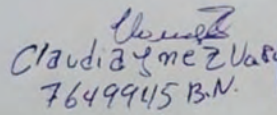 Claudia Ynez Vas
7649945 B.N.